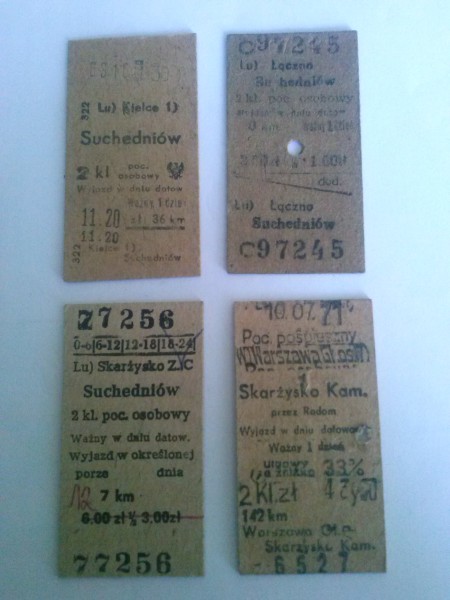 322 Lu) Kielce 1)
Suchedniów
2 kl poc.
osobowy
Wyjazd w dniu datow.
Ważny 1 dzień
11.20 zł 36 km
11.20
322 Kielce 1)
Suchedniów
C97245
Lu) Łączno
Suchedniów
2 kl. poc. osobowy
Wyjazd w dniu datow.
dod.
Lu) Łączno
Suchedniów
C97245
77256
0-6|6-12|12-18|18-24
Lu) Skarżysko Z.C
Suchedniów
2 kl. poc. osobowy
Ważny w dniu datow.
Wyjazd w określonej
porze dnia
7 km
6.00 zł ½ 3.00zł
77256
10.07.71
Poc. pośpieszny
Skarżysko Kam.
przez Radom
Wyjazd w dniu datowan
Ważny 1 dzień
33%
2 kl.zł
142 km
Warszawa
Skarżysko Kam.
6527